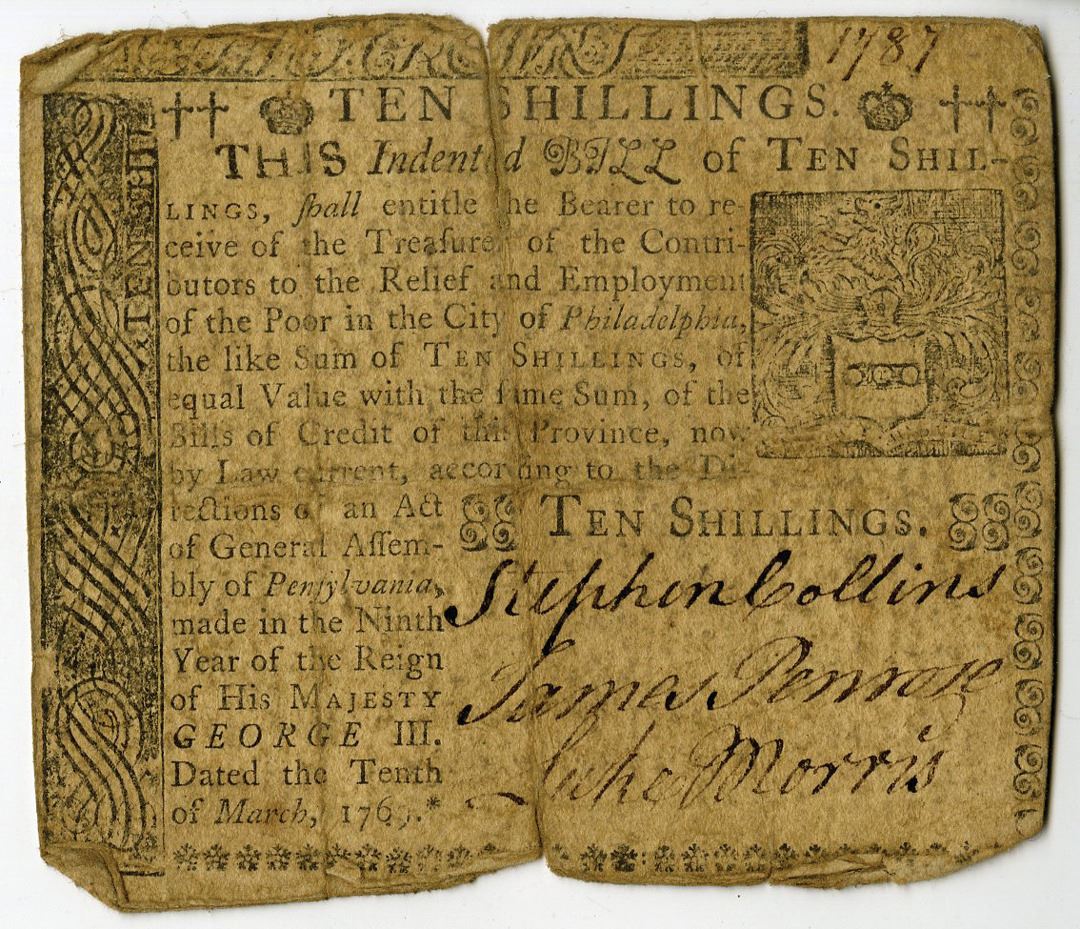 1787
TEN SHILLINGS.
THIS Indented BILL of TEN SHIL-
LINGS, ſhall entitle the Bearer to re-
ceive of the Treaſurer of the Contri-
butors to the Relief and Employment
of the Poor in the City of Philadelphia,
the like Sum of TEN SHILLINGS, of
equal Value with the ſame Sum, of the
Bills of Credit of this Province, now
by Law current, according to the Di-
rections of an Act
of General Aſſem-
bly of Penſylvania,
made in the Ninth
Year of the Reign
of His MAJESTY
GEORGE III.
Dated the Tenth
of March, 1769.*
TEN SHILLINGS.
Stephen Collins
James Penrose
Luke Morris
TEN SHIL